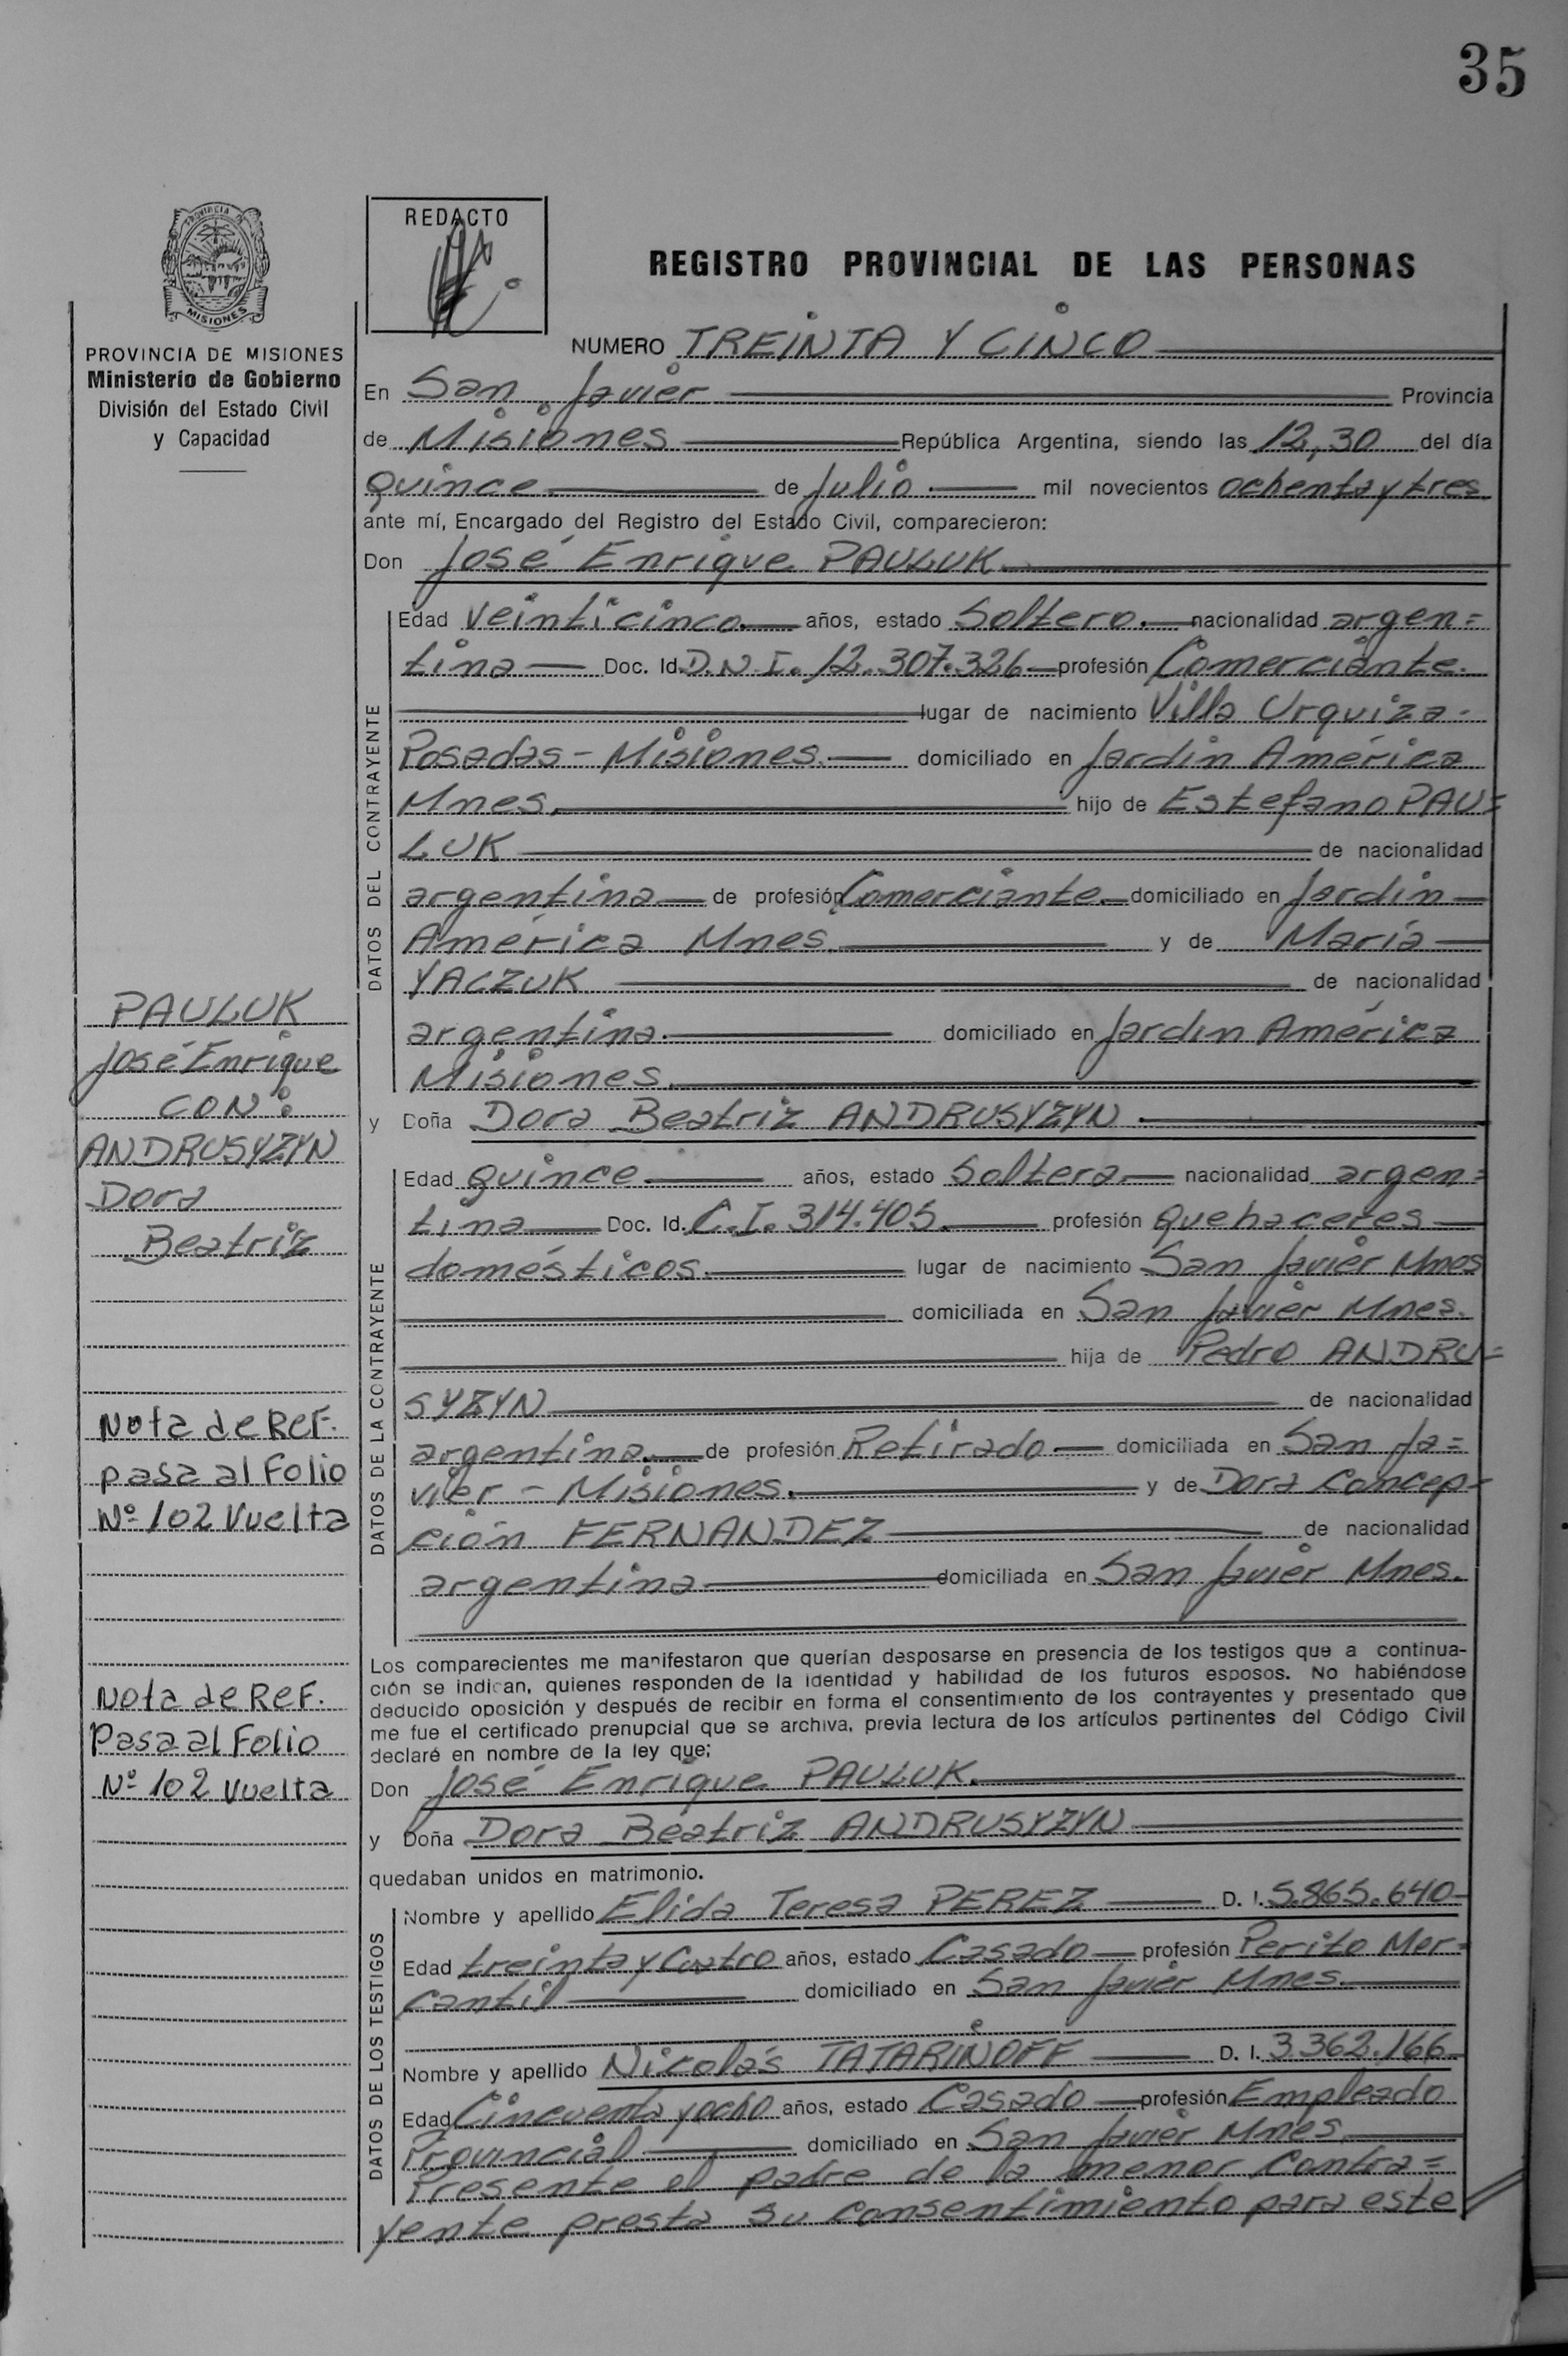 35
PROVINCIA
MISIONES
PROVINCIA DE MISIONES
Ministerio de Gobierno
División del Estado Civil
y Capacidad
REDACTO
REGISTRO PROVINCIAL DE LAS PERSONAS
NUMERO TREINTA Y CINCO
En San Javier Provincia
de Misiones República Argentina, siendo las 12,30 del día
quince de Julio mil novecientos ochenta y tres
ante mí, Encargado del Registro del Estado Civil, comparecieron:
Don José Enrique PAULUK
DATOS DEL CONTRAYENTE
Edad veinticinco años, estado Soltero nacionalidad argen=
tina Doc. Id. D.N.I. 12.307.326 profesión Comerciante.
lugar de nacimiento Villa Urquiza-
Posadas - Misiones. domiciliado en Jardin América
Mnes. hijo de Estefano PAU=
LUK de nacionalidad
argentina de profesión Comerciante domiciliado en Jardin
América Mnes. y de María
YACZUK de nacionalidad
argentina domiciliado en Jardin América
Misiones.
y Doña Dora Beatriz ANDRUSYZYN
DATOS DE LA CONTRAYENTE
Edad quince años, estado Soltera nacionalidad argen=
tina Doc. Id. C.I. 314.405 profesión quehaceres
domésticos lugar de nacimiento San Javier Mnes
domiciliada en San Javier Mnes.
hija de Pedro ANDRU=
SYZYN de nacionalidad
argentina de profesión Retirado domiciliada en San Ja=
vier - Misiones. y de Dora Concep-
ción FERNANDEZ de nacionalidad
argentina domiciliada en San Javier Mnes.
Los comparecientes me manifestaron que querían desposarse en presencia de los testigos que a continua-
ción se indican, quienes responden de la identidad y habilidad de los futuros esposos. No habiéndose
deducido oposición y después de recibir en forma el consentimiento de los contrayentes y presentado que
me fue el certificado prenupcial que se archiva, previa lectura de los artículos pertinentes del Código Civil
declaré en nombre de la ley que;
Don José Enrique PAULUK.
y Doña Dora Beatriz ANDRUSYZYN
quedaban unidos en matrimonio.
DATOS DE LOS TESTIGOS
Nombre y apellido Elida Teresa PEREZ D. I. 5.865.640
Edad treinta y Cuatro años, estado Casado profesión Perito Mer-
cantil domiciliado en San Javier Mnes.
Nombre y apellido Nicolás TATARINOFF D. I. 3.362.166
Edad Cincuenta y ocho años, estado Casado profesión Empleado
Provincial domiciliado en San Javier Mnes.
Presente el padre de la menor Contra=
yente presta su consentimiento para este
PAULUK
José Enrique
CON:
ANDRUSYZYN
Dora
Beatriz
Nota de Ref.
pasa al Folio
Nº 102 Vuelta
Nota de Ref.
Pasa al Folio
Nº 102 Vuelta